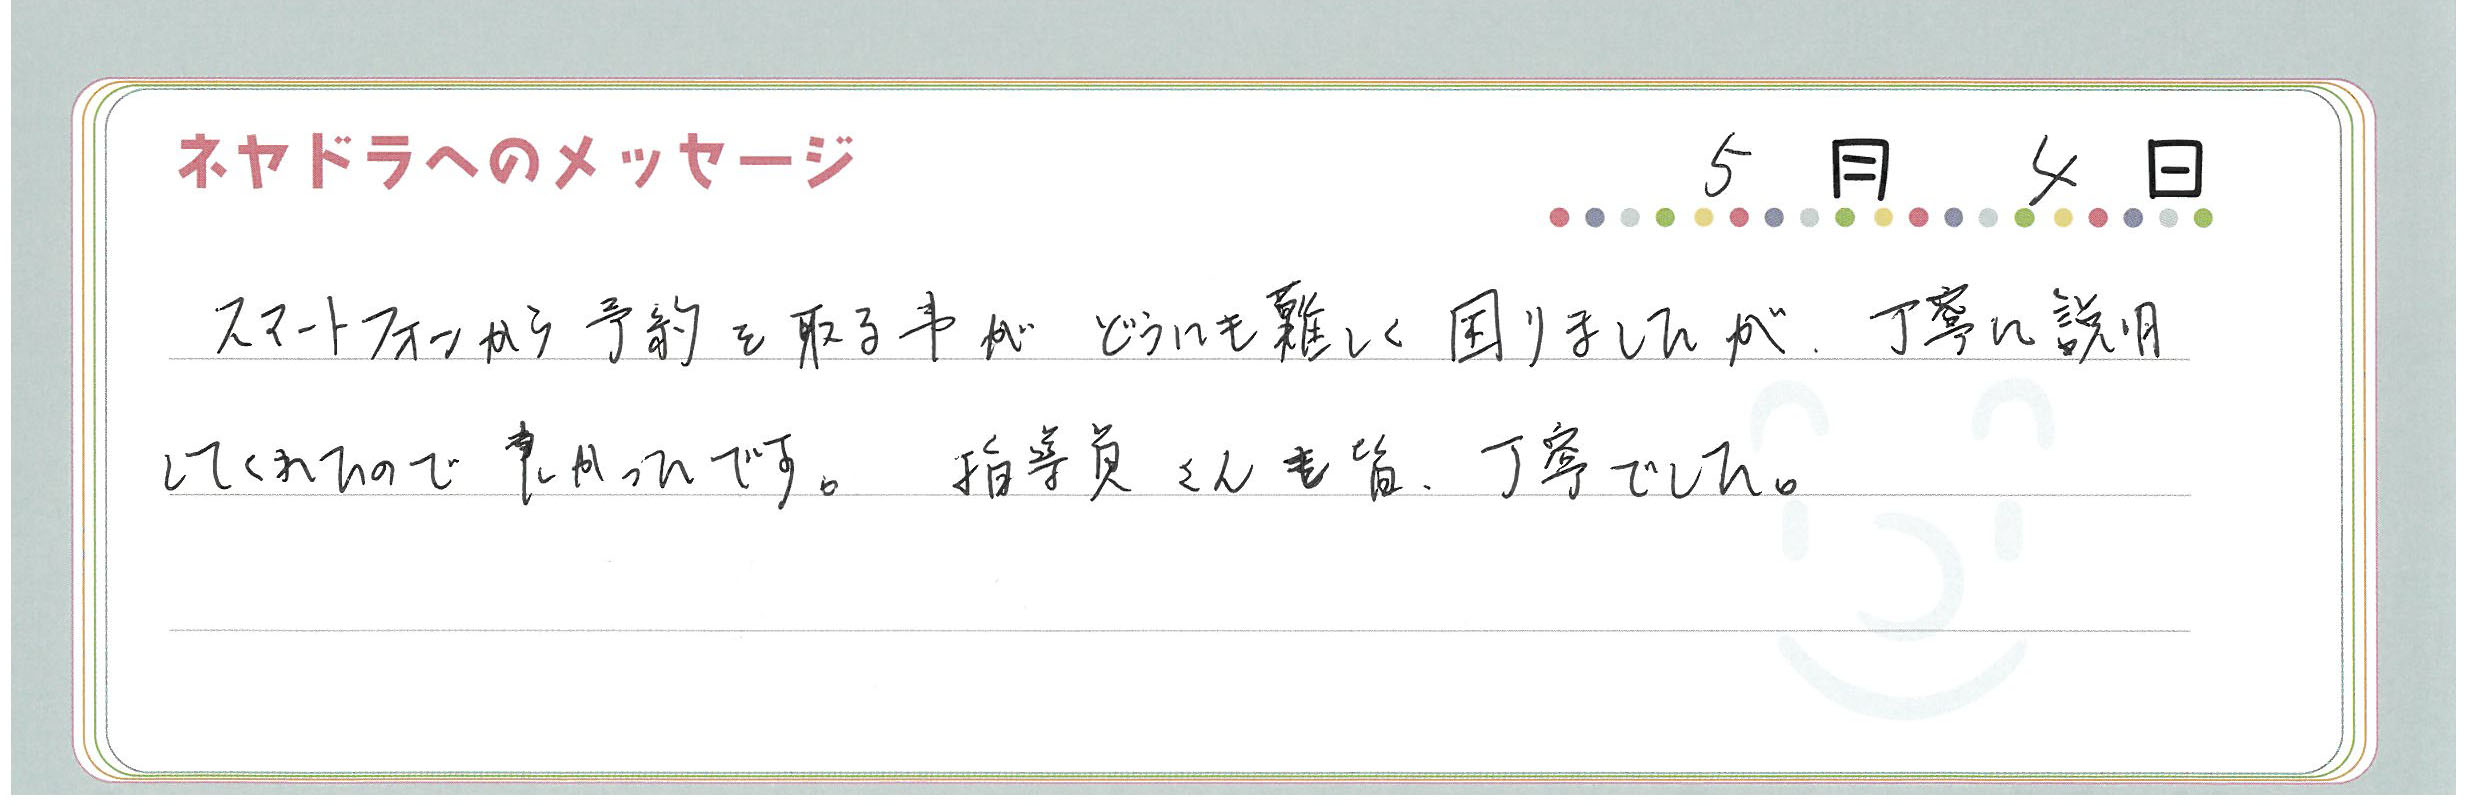 ネヤドラへのメッセージ
5月 4日
スマートフォンから予約を取る事が どうにも難しく 困りましたが、丁寧に説明
してくれたので かったです。 指導員さんも皆、丁寧でした。